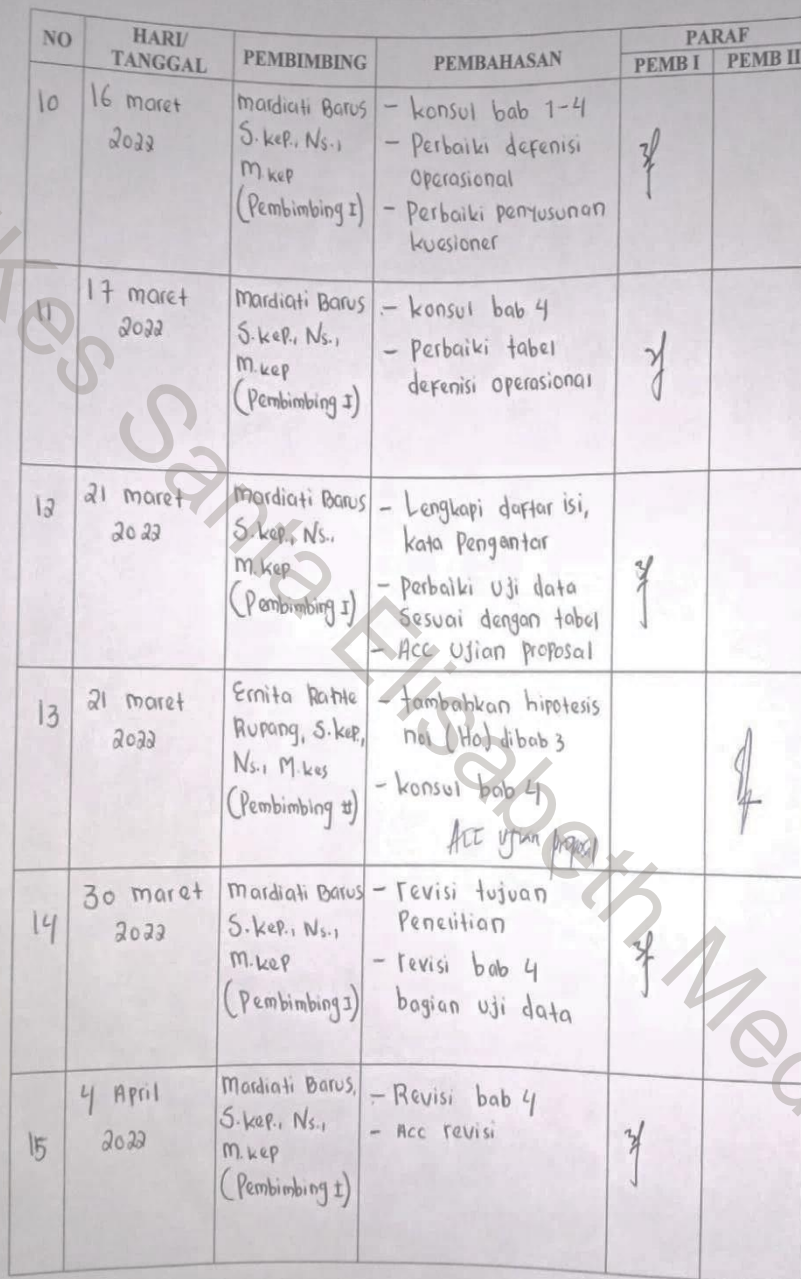 NO HARI/ TANGGAL PEMBIMBING PEMBAHASAN PARAF
PEMB I PEMB II
10 16 maret 2022
Mardiati Barus
S.kep., Ns.,
M.kep
(Pembimbing I)
- konsul bab 1-4
- Perbaiki defenisi
Operasional
- Perbaiki penyusunan
kuesioner
11 17 maret 2022
Mardiati Barus
S.kep., Ns.,
M.kep
(Pembimbing I)
- konsul bab 4
- Perbaiki tabel
defenisi operasional
12 21 maret 2022
Mardiati Barus
S.kep., Ns.,
M.kep
(Pembimbing I)
- Lengkapi daftar isi,
kata Pengantar
- perbaiki Uji data
Sesuai dengan tabel
- Acc Ujian proposal
13 21 maret 2022
Ernita Rante
Rupang, S.kep,
Ns., M.kes
(Pembimbing II)
- tambahkan hipotesis
nol (Ho) dibab 3
- konsul bab 4
Acc ujian proposal
14 30 maret 2022
Mardiati Barus
S.kep., Ns.,
M.kep
(Pembimbing I)
- revisi tujuan
Penelitian
- revisi bab 4
bagian uji data
15 4 April 2022
Mardiati Barus,
S.kep., Ns.,
M.kep
(Pembimbing I)
- Revisi bab 4
- Acc revisi
Kes Santa Elisabeth Med